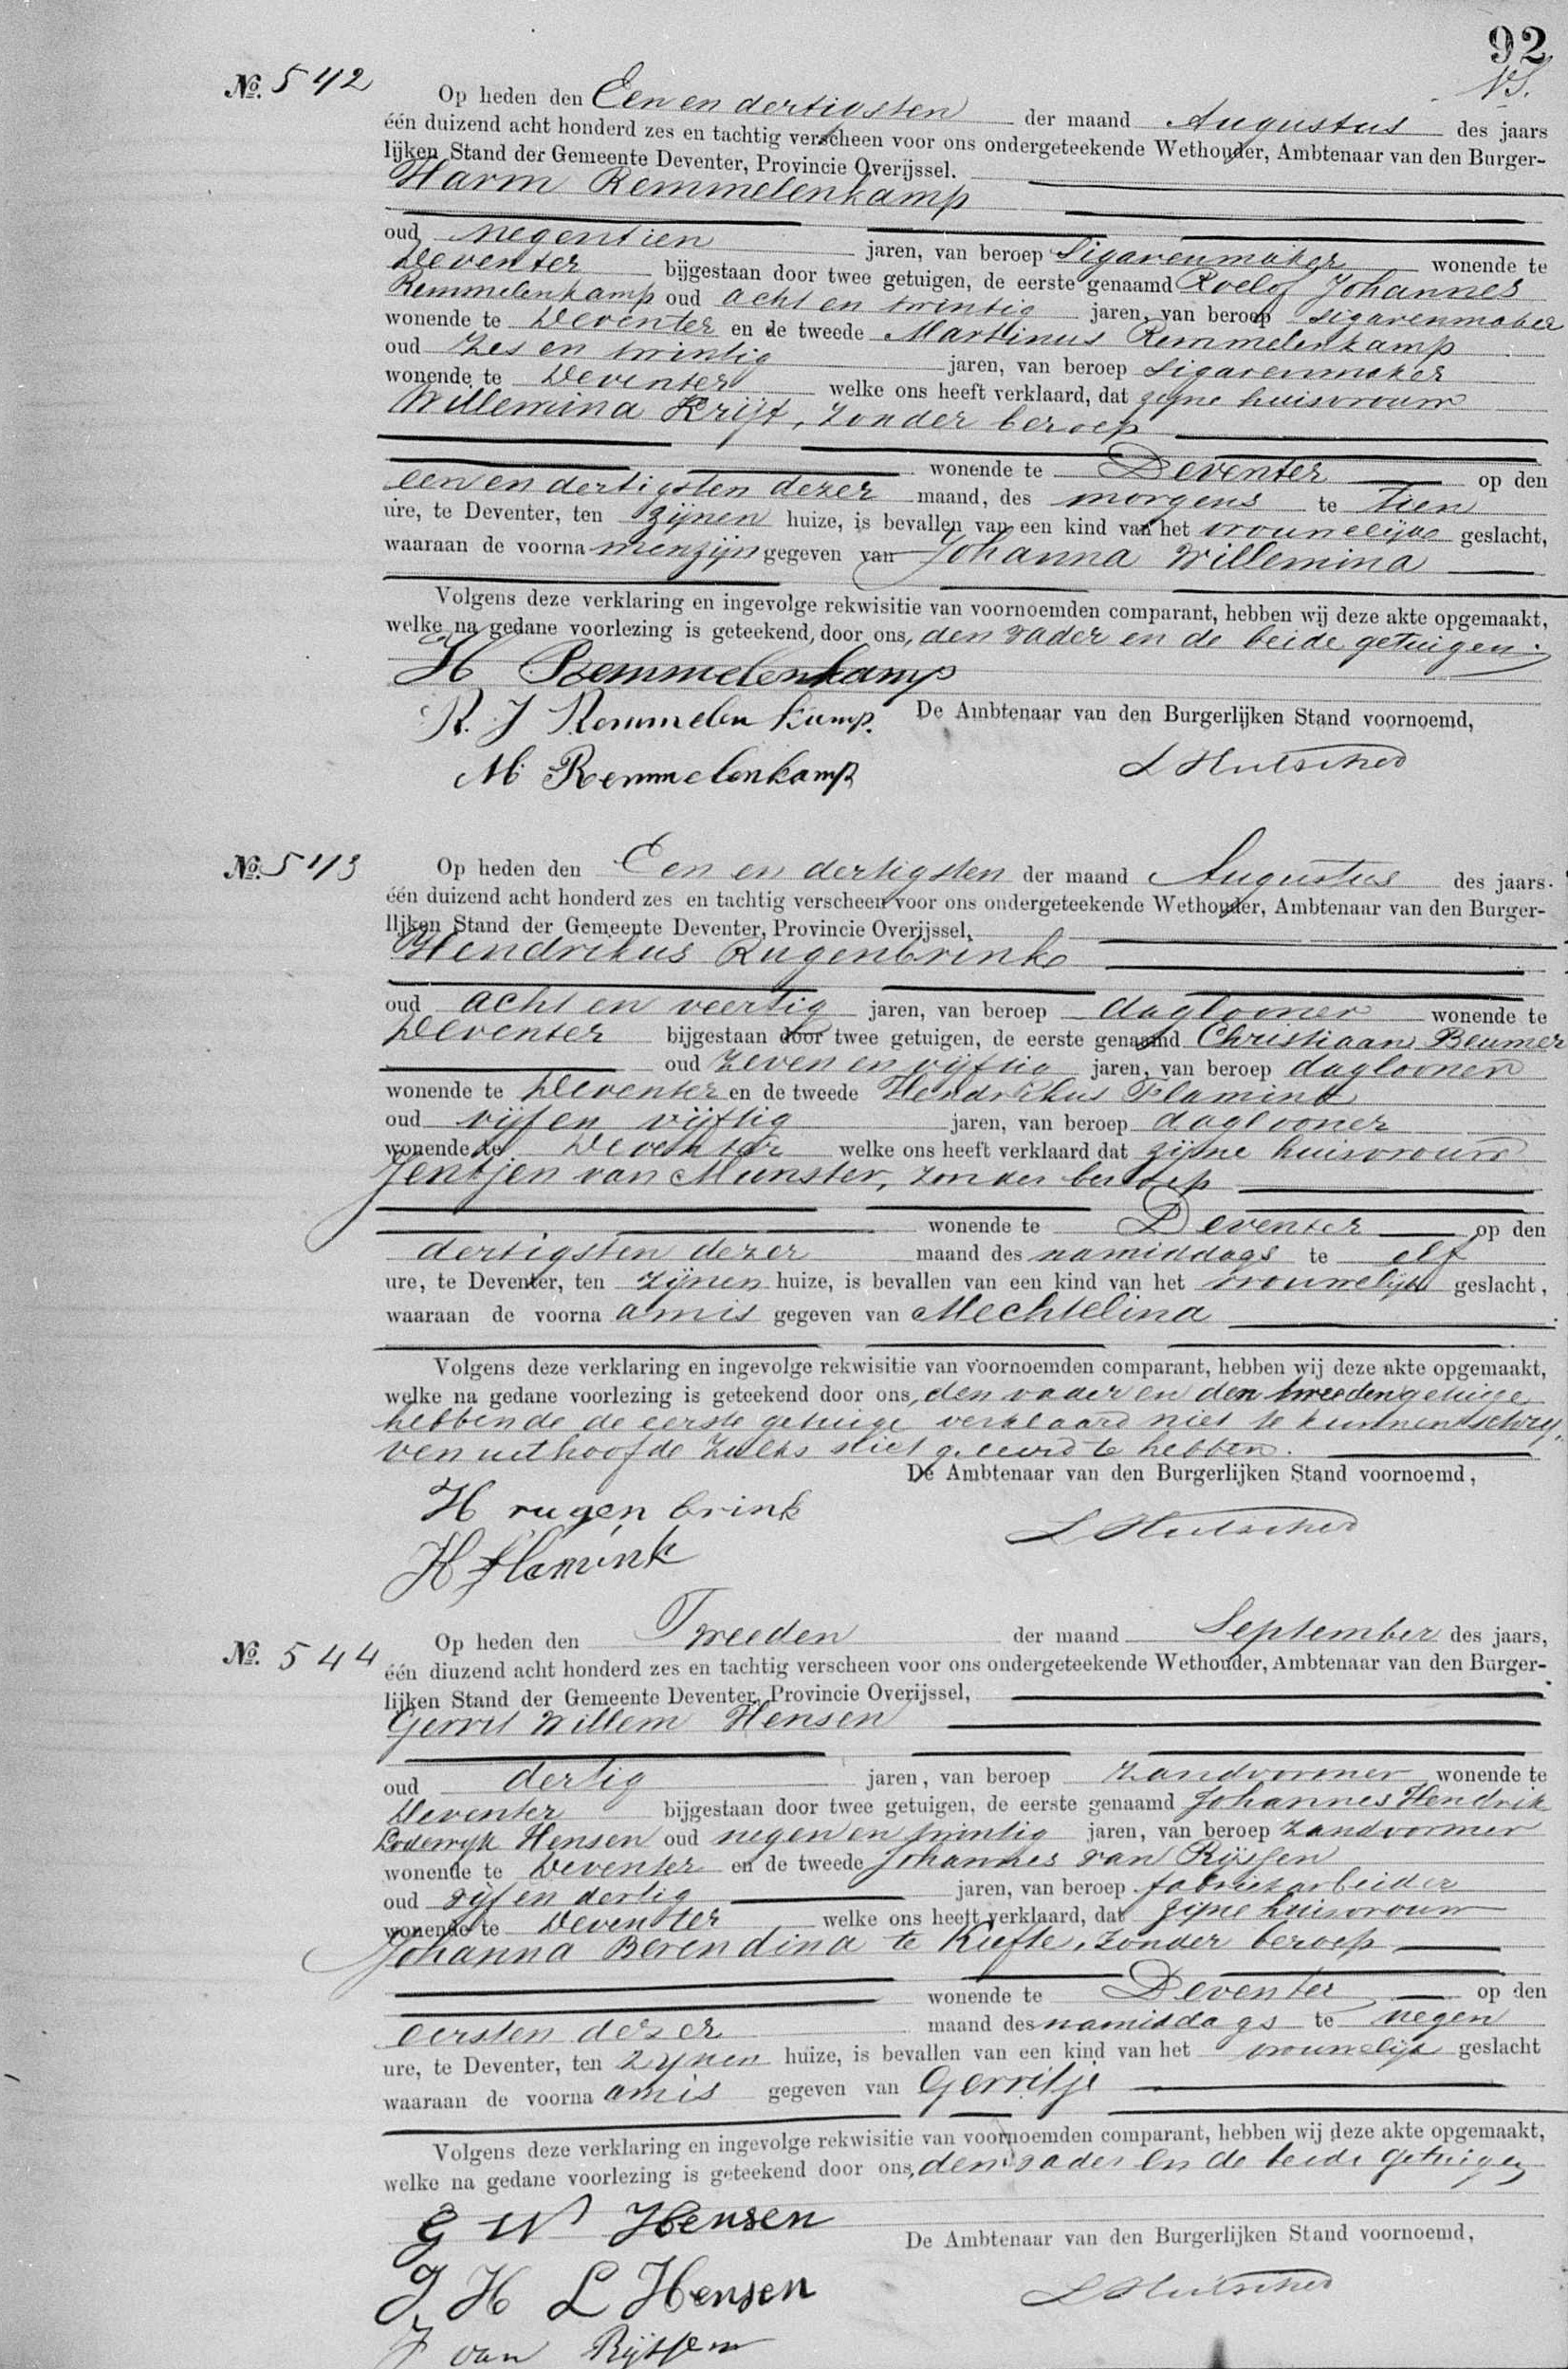 92
VS.
No. 542
Op heden den Een en dertigsten der maand Augustus des jaars
één duizend acht honderd zes en tachtig verscheen voor ons ondergeteekende Wethouder, Ambtenaar van den Burger-
lijken Stand der Gemeente Deventer, Provincie Overijssel.
Harm Remmelenkamp
oud negentien jaren, van beroep Sigarenmaker wonende te
Deventer bijgestaan door twee getuigen, de eerste genaamd Roelof Johannes
Remmelenkamp oud acht en twintig jaren, van beroep sigarenmaker
wonende te Deventer en de tweede Martinus Remmelenkamp
oud zes en twintig jaren, van beroep sigarenmaker
wonende te Deventer welke ons heeft verklaard, dat zijne huisvrouw
Willemina Krijt, zonder beroep
wonende te Deventer op den
een en dertigsten dezer maand, des morgens te tien
ure, te Deventer, ten zijnen huize, is bevallen van een kind van het vrouwelijke geslacht,
waaraan de voorna menzijn gegeven van Johanna Willemina
Volgens deze verklaring en ingevolge rekwisitie van voornoemden comparant, hebben wij deze akte opgemaakt,
welke na gedane voorlezing is geteekend, door ons, den vader en de beide getuigen.
H Remmelenkamp
R. J Remmelenkamp. De Ambtenaar van den Burgerlijken Stand voornoemd,
M Remmelenkamp
No. 543
Op heden den Een en dertigsten der maand Augustus des jaars
één duizend acht honderd zes en tachtig verscheen voor ons ondergeteekende Wethouder, Ambtenaar van den Burger-
lijken Stand der Gemeente Deventer, Provincie Overijssel,
Hendrikus Rugenbrink
oud acht en veertig jaren, van beroep daglooner wonende te
Deventer bijgestaan door twee getuigen, de eerste genaamd Christiaan Beumer
oud zeven en vijftig jaren, van beroep daglooner
wonende te Deventer en de tweede Hendrikus Flamink
oud vijf en vijftig jaren, van beroep daglooner
wonende te Deventer welke ons heeft verklaard dat zijne huisvrouw
Jentjen van Munster, zonder beroep
wonende te Deventer op den
dertigsten dezer maand des namiddags te elf
ure, te Deventer, ten zijnen huize, is bevallen van een kind van het vrouwelijk geslacht,
waaraan de voorna amis gegeven van Mechtelina
Volgens deze verklaring en ingevolge rekwisitie van voornoemden comparant, hebben wij deze akte opgemaakt,
welke na gedane voorlezing is geteekend door ons, den vader en den tweeden getuige
hebbende de eerste getuige verklaard niet te kunnen schrij-
ven uithoofde zulks niet geleerd te hebben.
De Ambtenaar van den Burgerlijken Stand voornoemd,
H rugen brink
H flamink
No. 544
Op heden den Tweeden der maand September des jaars,
één diuzend acht honderd zes en tachtig verscheen voor ons ondergeteekende Wethouder, Ambtenaar van den Burger-
lijken Stand der Gemeente Deventer, Provincie Overijssel,
Gerrit Willem Hensen
oud dertig jaren, van beroep zandvormer wonende te
Deventer bijgestaan door twee getuigen, de eerste genaamd Johannes Hendrik
Lodewyk Hensen oud negen en twintig jaren, van beroep zandvormer
wonende te Deventer en de tweede Johannes van Rijssen
oud vijf en dertig jaren, van beroep fabriekarbeider
wonende te Deventer welke ons heeft verklaard, dat zijne huisvrouw
Johanna Berendina te Kiefte, zonder beroep
wonende te Deventer op den
eersten dezer maand des namiddags te negen
ure, te Deventer, ten zynen huize, is bevallen van een kind van het vrouwelijk geslacht
waaraan de voorna amis gegeven van Gerritje
Volgens deze verklaring en ingevolge rekwisitie van voornoemden comparant, hebben wij deze akte opgemaakt,
welke na gedane voorlezing is geteekend door ons, den vader en de beide getuigen
G W Hensen
De Ambtenaar van den Burgerlijken Stand voornoemd,
J H L Hensen
J van Rijssen